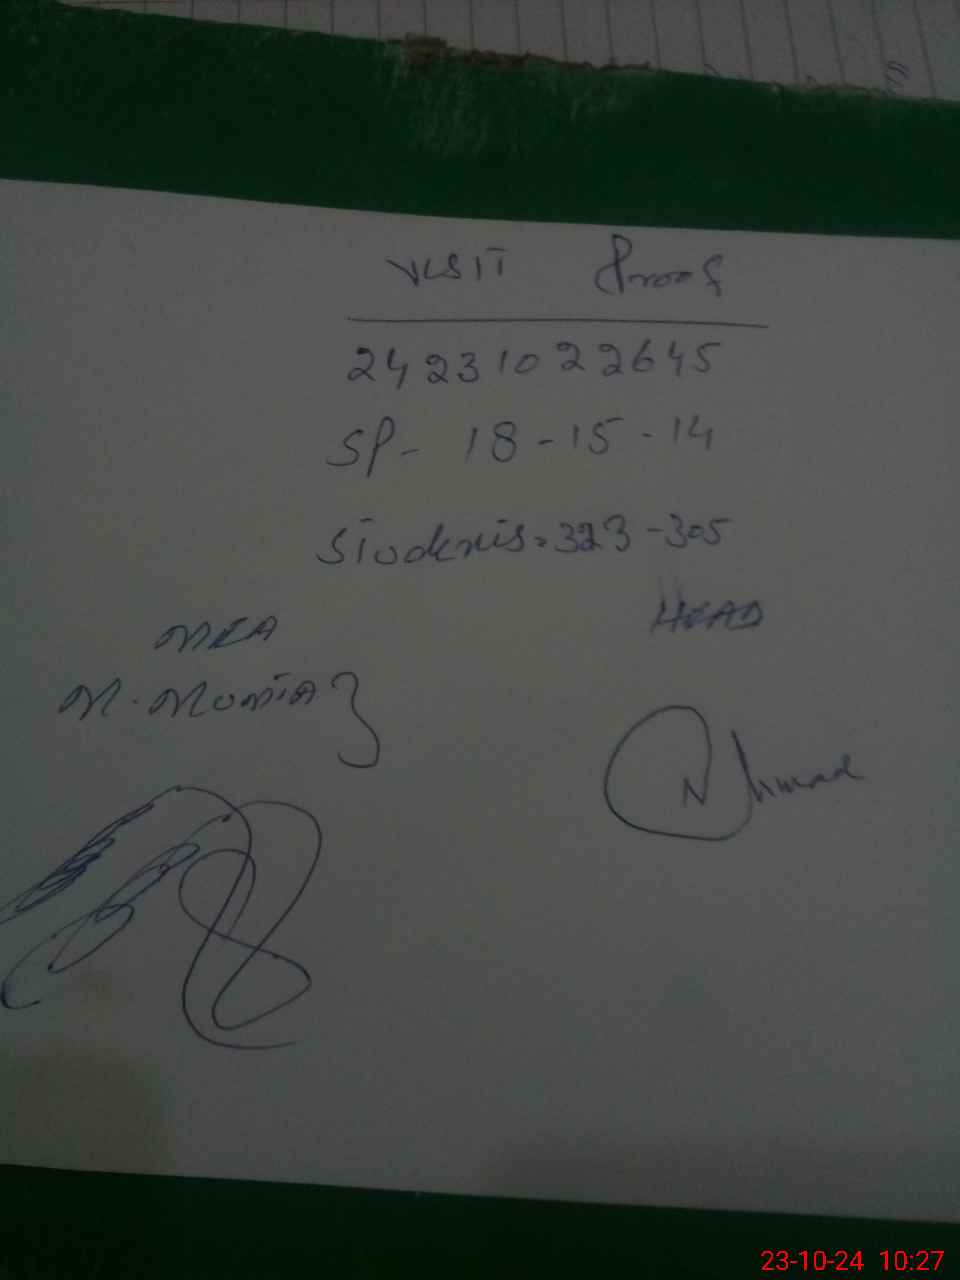 Visit Proof
24231022645
SP- 18-15-14
Students. 323-305
MEA HEAD
M. Momtaz
Ahmad
23-10-24 10:27